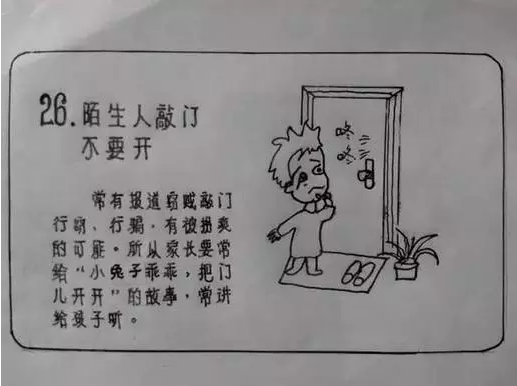 26.陌生人敲门
不要开
常有报道窃贼敲门
行窃、行骗,有被拐卖
的可能。所以家长要常
给“小兔子乖乖,把门
儿开开”的故事,常讲
给孩子听。
咚
咚